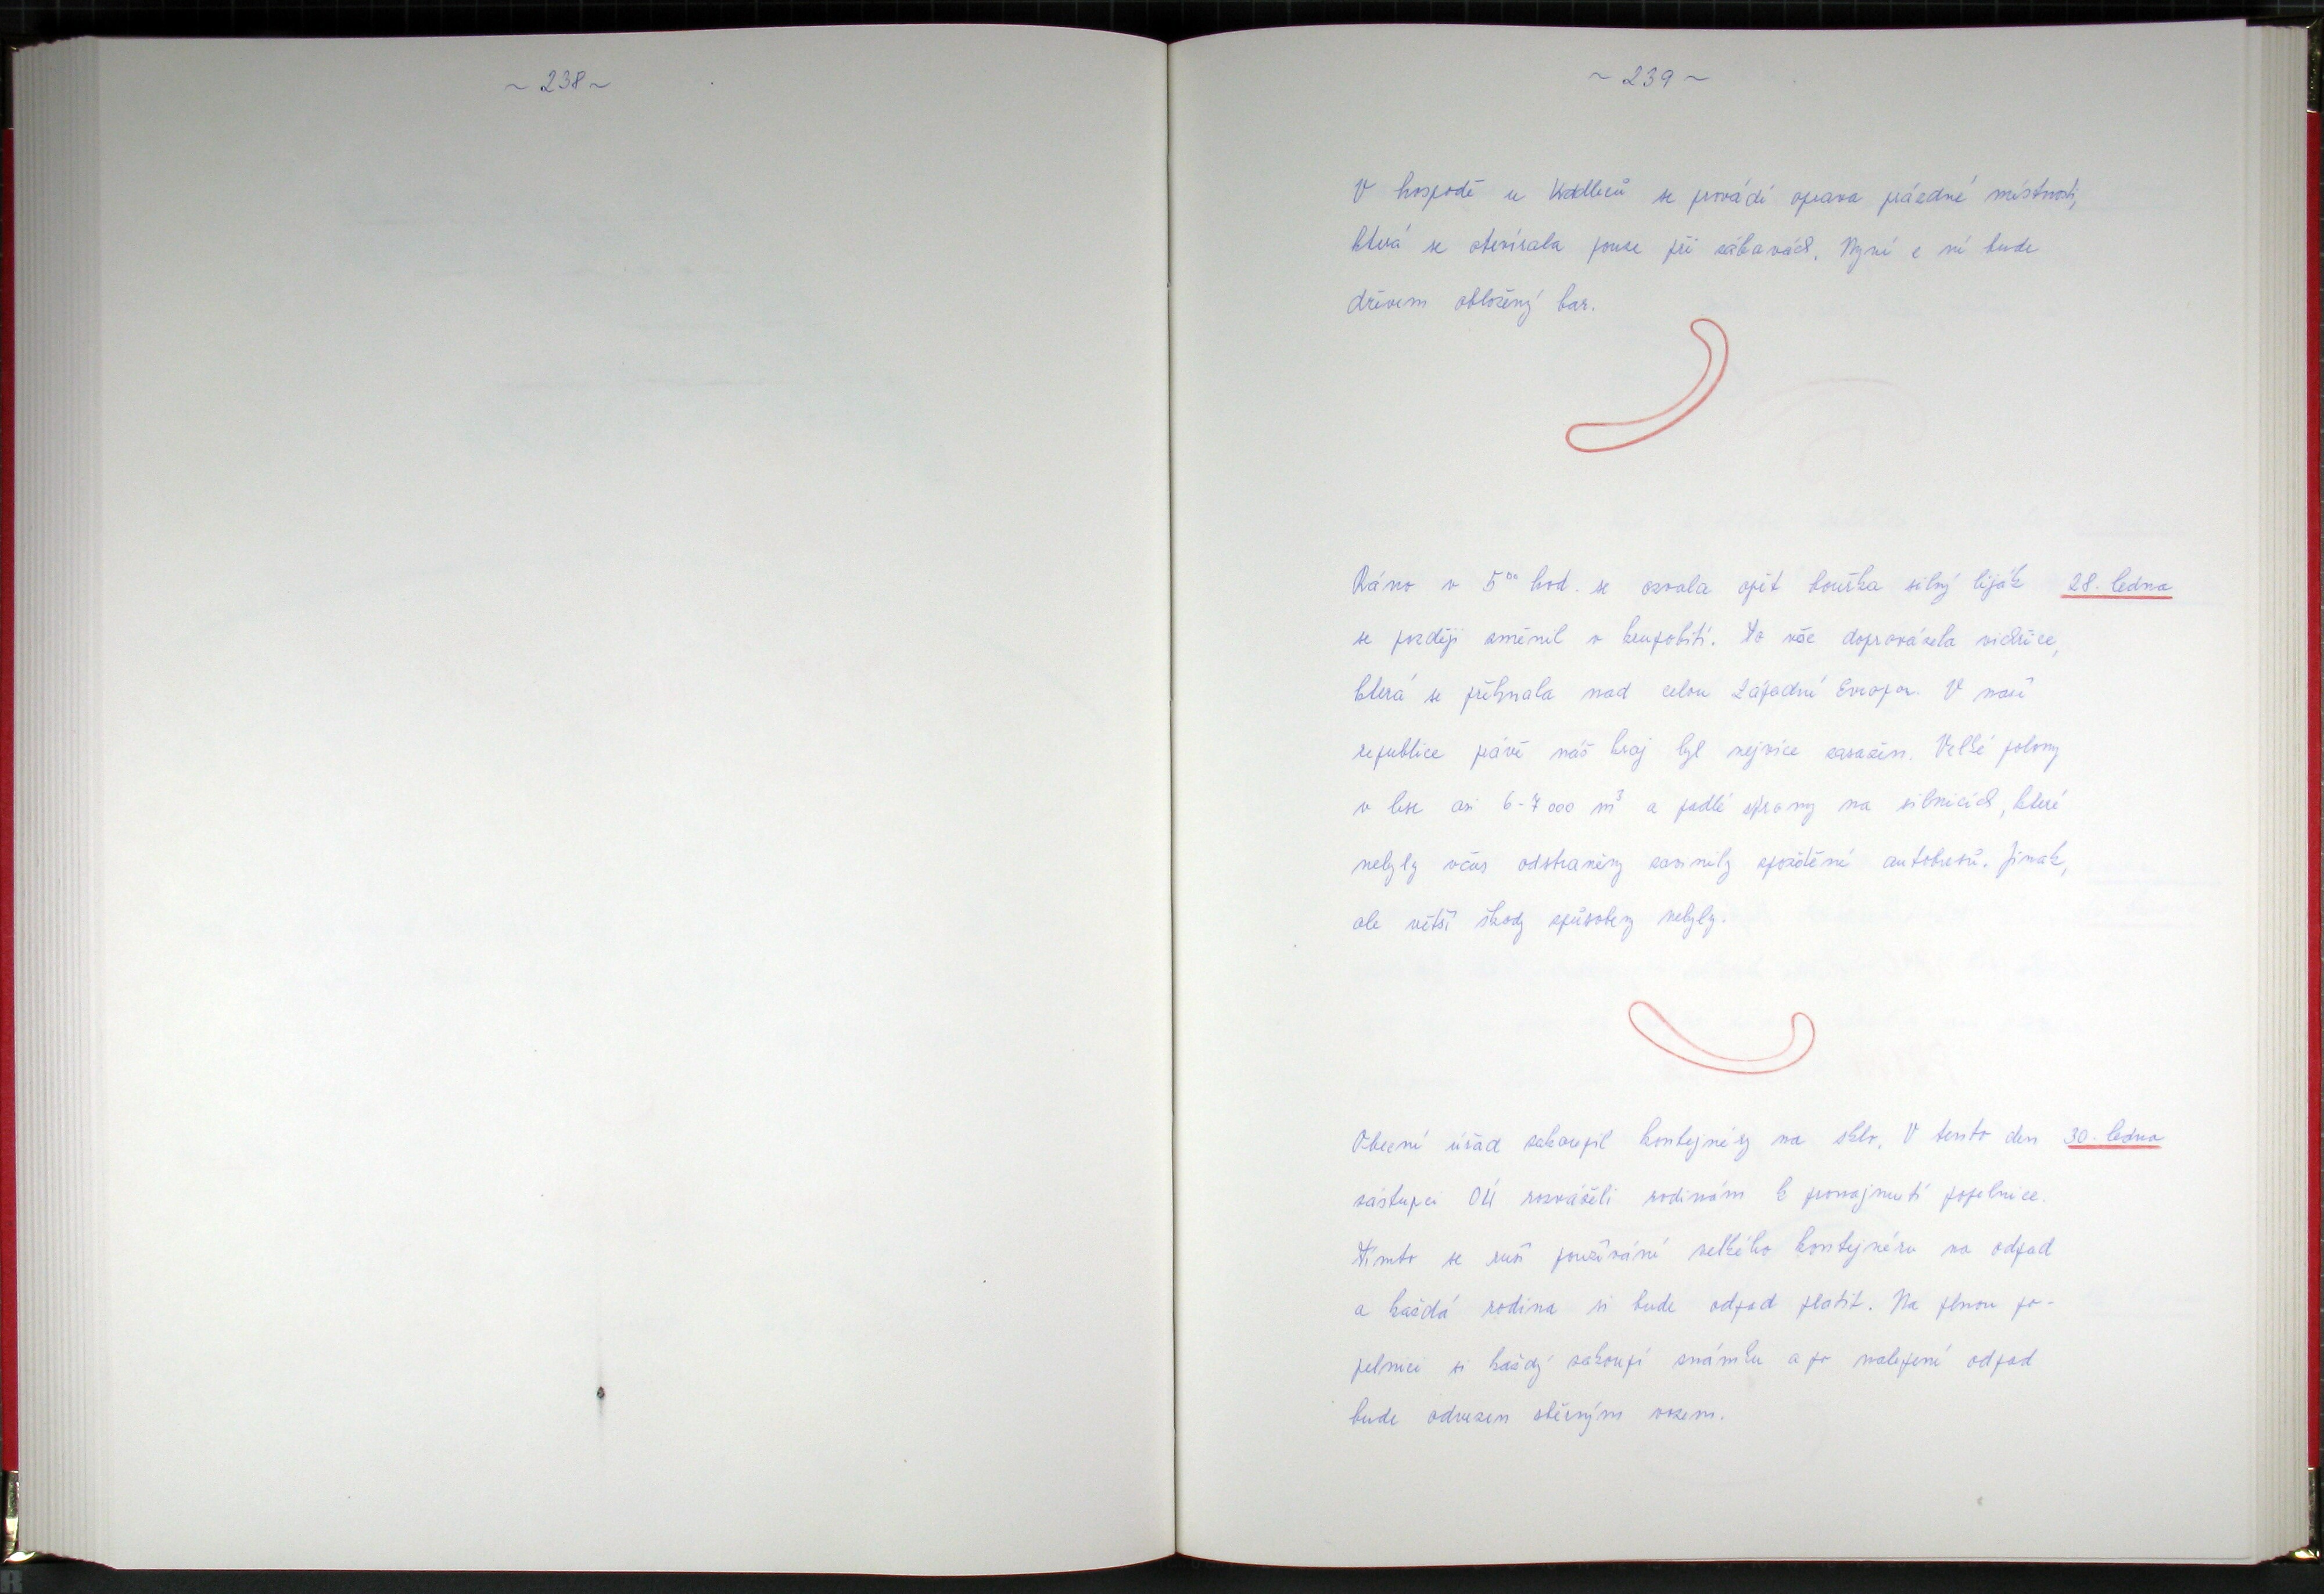 ~ 238 ~
~ 239 ~
V hospodě u se provádí oprava prázdné místnosti,
která se otevírala pouze při zábavách. Nyní z ní bude
dřevem obložený bar.
Ráno v 5⁰⁰ hod. se ozvala opět bouřka silný liják 28. ledna
se později změnil v krupobití. To vše doprovázela vichřice,
která se přehnala nad celou Západní Evropou. V naší
republice právě náš kraj byl nejvíce zasažen. Velké polomy
v lese asi 6-7 000 m³ a padlé stromy na silnicích, které
nebyly včas odstraněny zavinily zpoždění autobusů. Jinak,
ale větší škody způsobeny nebyly.
Obecní úřad zakoupil kontejnéry na sklo. V tento den 30. ledna
zástupci OÚ rozváželi rodinám k pronajmutí popelnice.
Tímto se ruší používání velkého kontejnéru na odpad
a každá rodina si bude odpad platit. Na plnou po-
pelnici si každý zakoupí známku a po nalepení odpad
bude odvezen sběrným vozem.